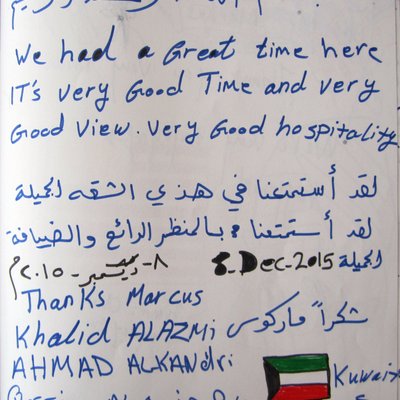 We had a Great time here
IT's very Good Time and very
Good View. Very Good hospitality
لقد أستمتعنا في هذي الشقه الجميلة
لقد أستمتعنا بالمنظر الرائع والضيافة
الجميلة 8-Dec-2015 ٨-ديسمبر-٢٠١٥م
Thanks Marcus
Khalid ALAZMi شكراً ماركوس
AHMAD ALKANdri
Kuwait